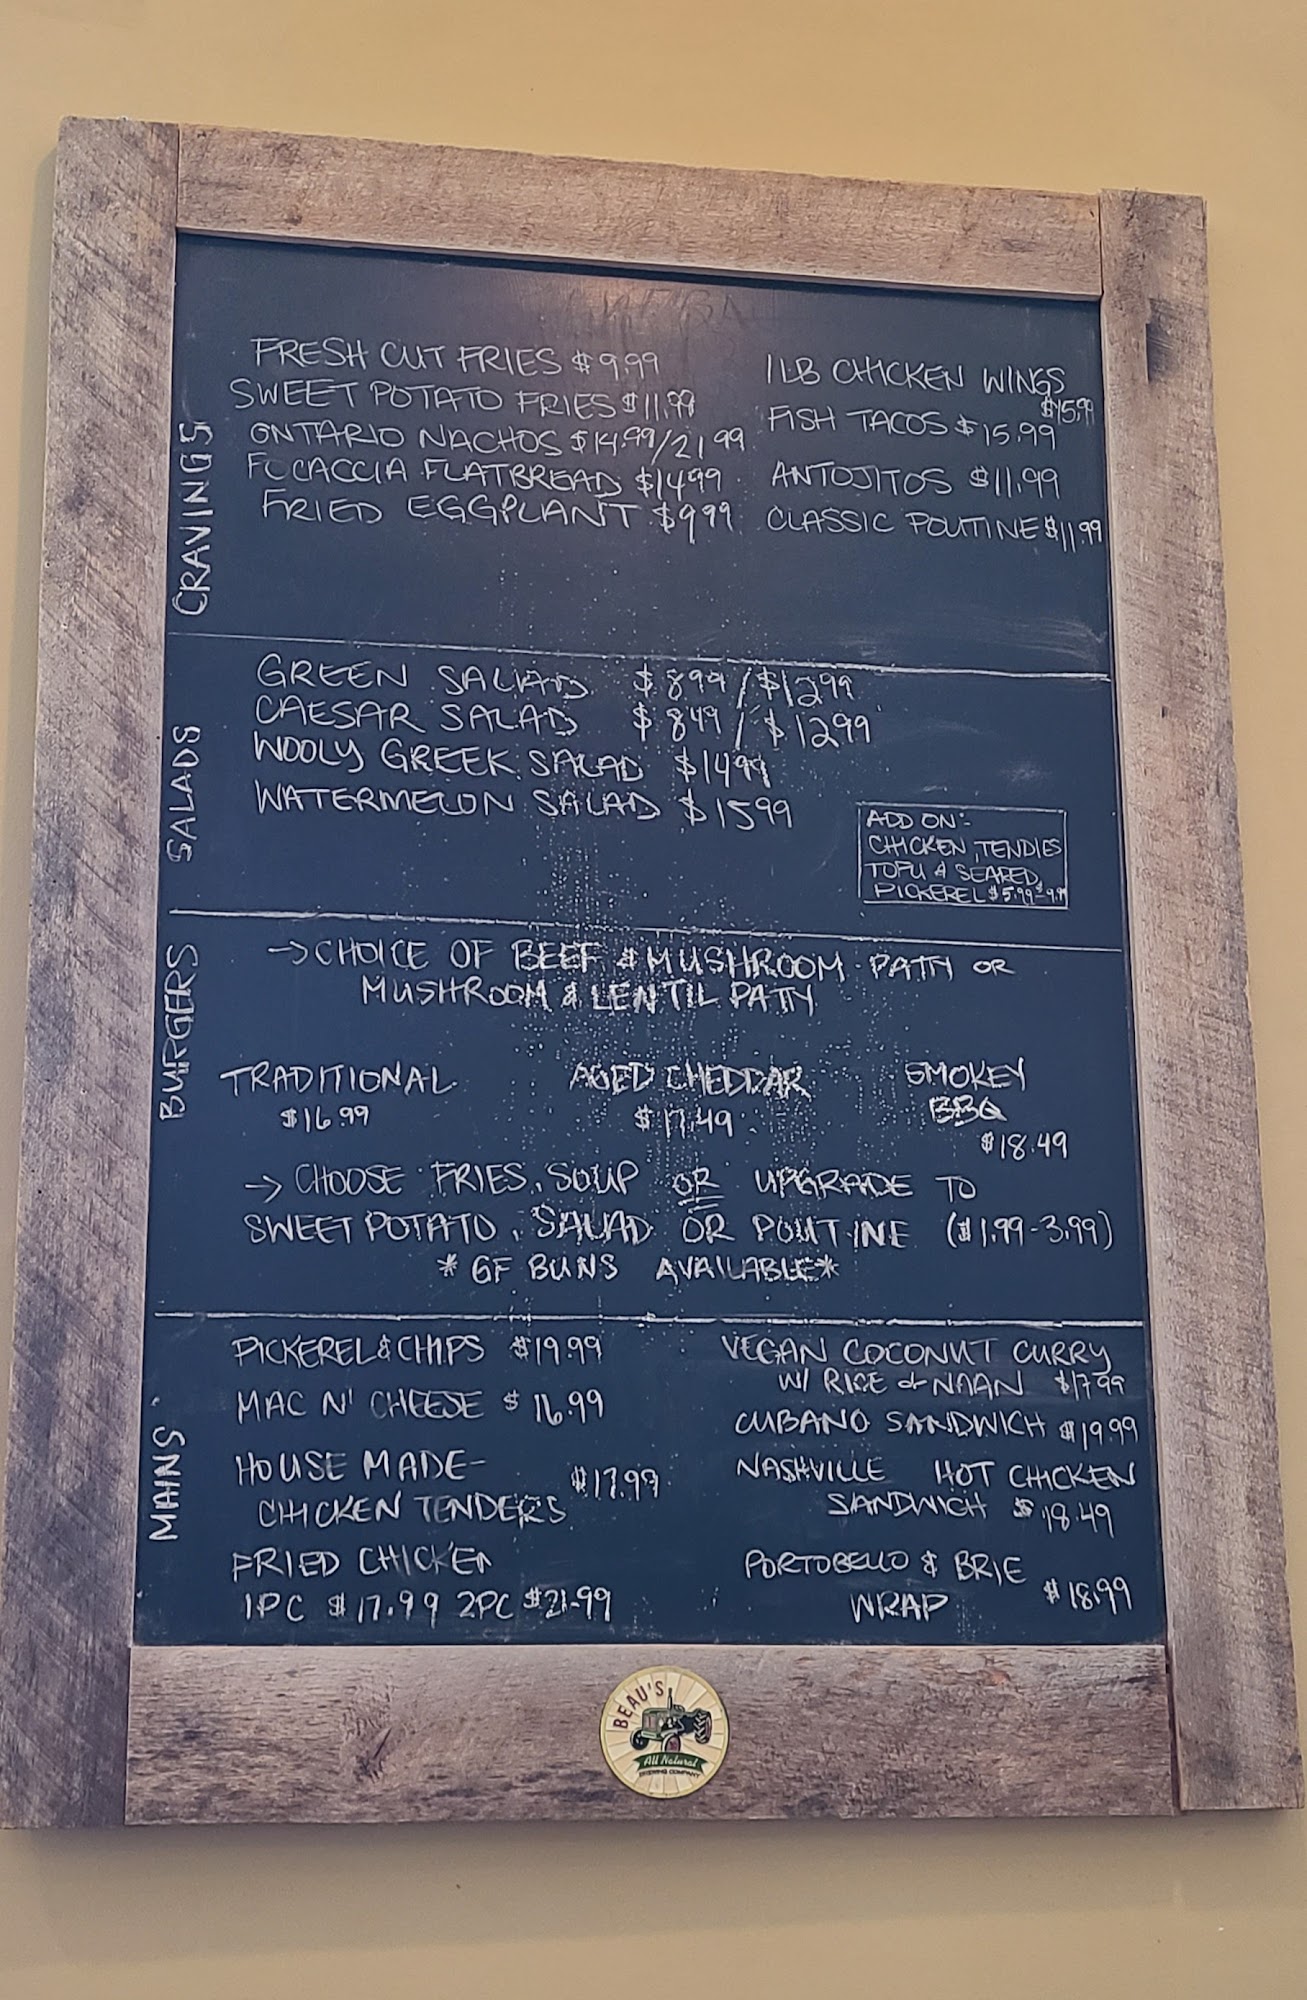 CRAVINGS
FRESH CUT FRIES $9.99
SWEET POTATO FRIES $11.99
ONTARIO NACHOS $14.99/21.99
FOCACCIA FLATBREAD $14.99
FRIED EGGPLANT $9.99
1 LB CHICKEN WINGS
$15.99
FISH TACOS $15.99
ANTOJITOS $11.99
CLASSIC POUTINE $11.99
SALADS
GREEN SALAD $8.99/$12.99
CAESAR SALAD $8.49/$12.99
WOOLY GREEK SALAD $14.99
WATERMELON SALAD $15.99
ADD ON:-
CHICKEN, TENDIES
TOFU & SEARED
PICKEREL $5.99-$9.99
BURGERS
→ CHOICE OF BEEF & MUSHROOM PATTY OR
MUSHROOM & LENTIL PATTY
TRADITIONAL
$16.99
AGED CHEDDAR
$17.49
SMOKEY
BBQ
$18.49
→ CHOOSE FRIES, SOUP OR UPGRADE TO
SWEET POTATO, SALAD OR POUTINE ($1.99-3.99)
* GF BUNS AVAILABLE*
MAINS
PICKEREL & CHIPS $19.99
MAC N' CHEESE $16.99
HOUSE MADE-
CHICKEN TENDERS $17.99
FRIED CHICKEN
1PC $17.99 2PC $21.99
VEGAN COCONUT CURRY
W/ RICE & NAAN $17.99
CUBANO SANDWICH $19.99
NASHVILLE HOT CHICKEN
SANDWICH $18.49
PORTOBELLO & BRIE
WRAP $18.99
BEAU'S
All Natural
BREWING COMPANY